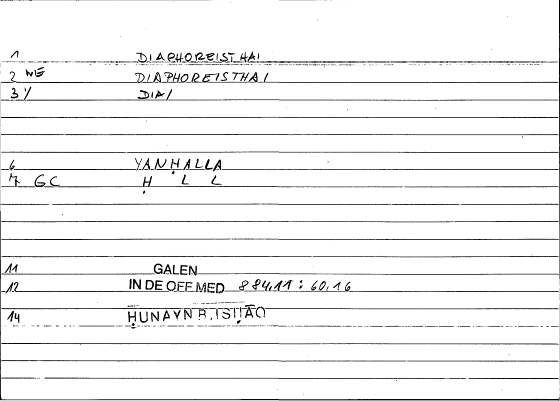 1 DIAPHOREISTHAI
2 NE DIAPHOREISTHAI
3 / DIA/
6 YANḤALLA
7 GC Ḥ L L
11 GALEN
12 IN DE OFF MED 884,11 : 60,16
14 ḤUNAYN B. ISḤĀQ